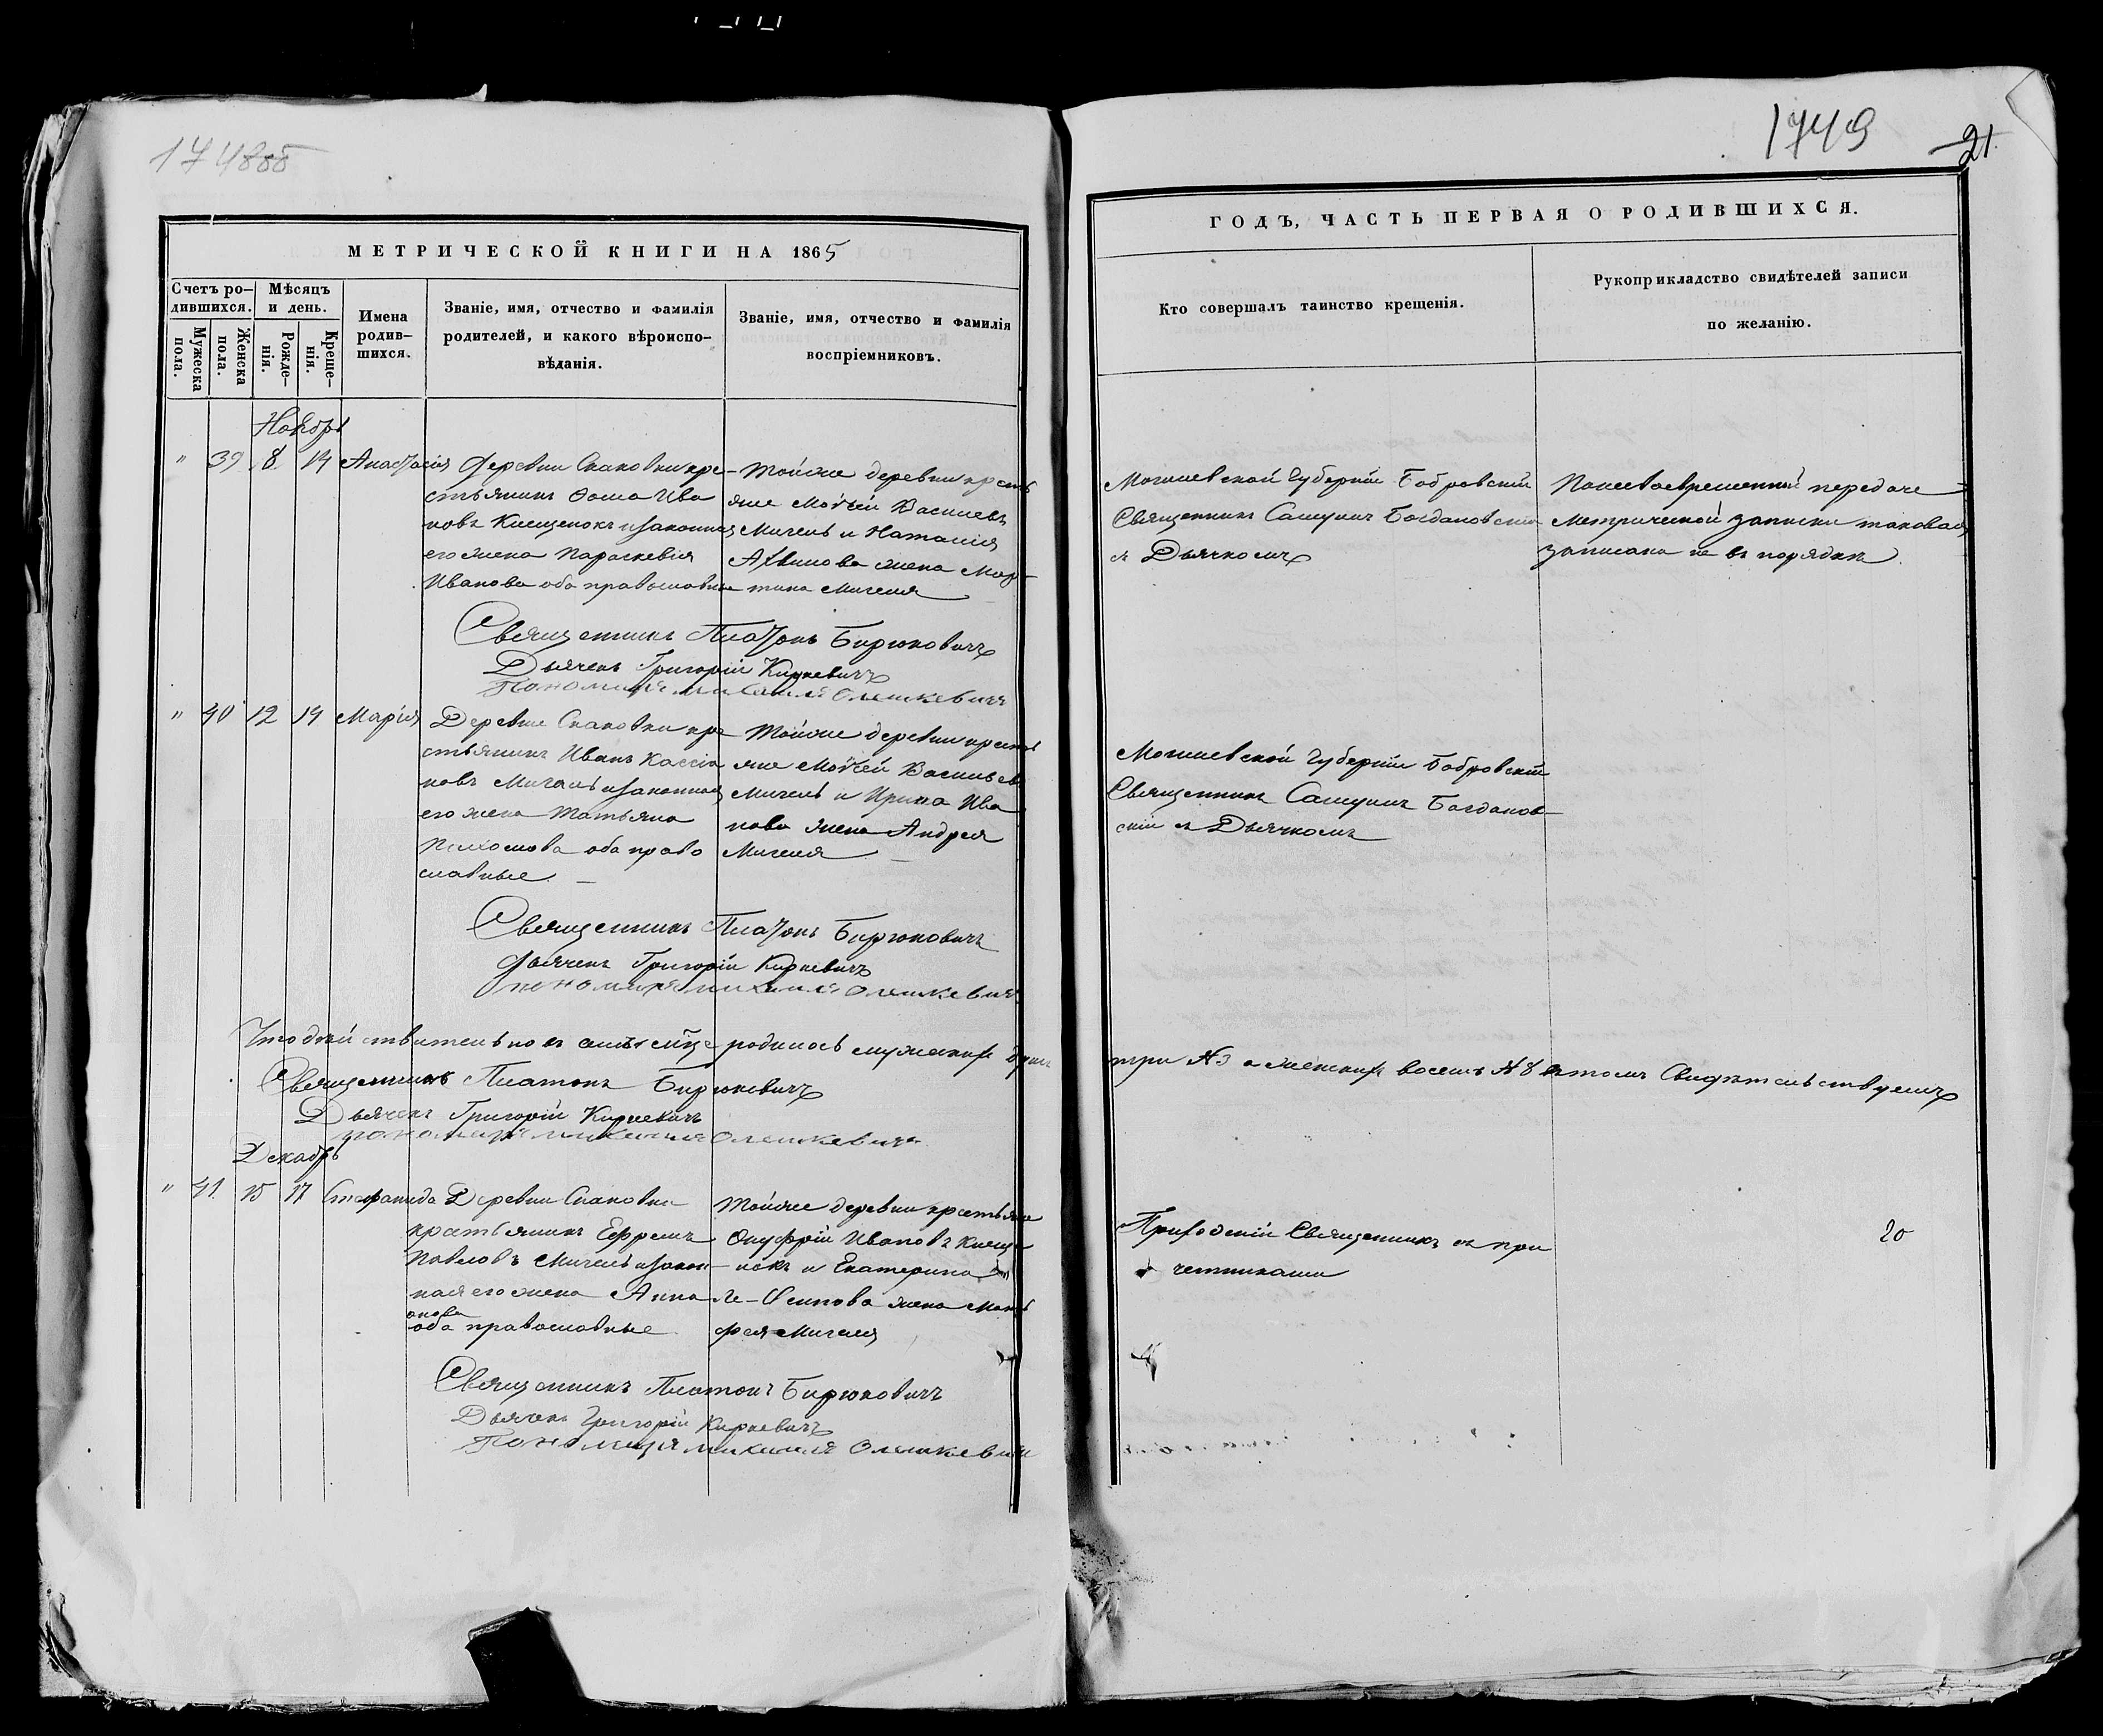 1748об
1749
21.
МЕТРИЧЕСКОЙ КНИГИ НА 1865
ГОДЪ, ЧАСТЬ ПЕРВАЯ О РОДИВШИХСЯ.
Счетъ ро-
дившихся.
Мужеска
пола.
Женска
пола.
Мѣсяцъ
и день.
Рожде-
нія.
Креще-
нія.
Имена
родив-
шихся.
Званіе, имя, отчество и фамилія
родителей, и какого вѣроиспо-
вѣданія.
Званіе, имя, отчество и фамилія
воспріемниковъ.
Кто совершалъ таинство крещенія.
Рукоприкладство свидѣтелей записи
по желанію.
Ноябрь
" 39 8 14 Анастасія
Деревни Скаковки кре-
стьянинъ Ѳома Ива
новъ Клещенокъ и законная
его жена Параскевія
Иванова оба православные
Тойже деревни кресть
яне Моѵсей Васильевъ
Мигель и Наталія
жена Мар-
тина Мигеля
Могилевской Губерніи Бобровскій
Священникъ Самуилъ Богдановскій
съ Дьячкомъ
По несвоевременной передаче
Метрической записки таковая
записана не въ порядкѣ.
Священникъ Платонъ Бирюковичъ
Дьячекъ Григорій Киркевичъ
Пономарь Михаилъ Олешкевичъ
" 40 12 14 Марія
Деревни Скаковки кре
стьянинъ Иванъ Кассіа
новъ Мигель и законная
его жена Татьяна
оба право
славные.
Тойже деревни кресть
яне Моѵсей Васильевъ
Мигель и Ирина Ива
нова жена Андрея
Мигеля
Могилевской Губерніи Бобровскій
Священникъ Самуилъ Богданов-
скій съ Дьячкомъ
Священникъ Платонъ Бирюковичъ
Дьячекъ Григорій Киркевичъ
Пономарь Михаилъ Олешкевичъ
Что действительно въ семъ месяце родилось мужскихъ душъ
три №3 а женскихъ восемь №8 въ томъ Свидѣтельствуемъ
Священникъ Платонъ Бирюковичъ
Дьячекъ Григорій Киркевичъ
Пономарь Михаилъ Олешкевичъ
Декабрь
" 41 15 17 Стефанида
Деревни Скаковки
крестьянинъ Ефремъ
Павловъ Мигель и закон-
ная его жена Анна
оба православные
Тойже деревни крестьяне
Онуфрій Ивановъ Клеще
нокъ и Екатерина
Осипова жена Мат
фея Мигеля
Приходскій Священникъ съ при
четниками
20
Священникъ Платонъ Бирюковичъ
Дьячекъ Григорій Киркевичъ
Пономарь Михаилъ Олешкевичъ